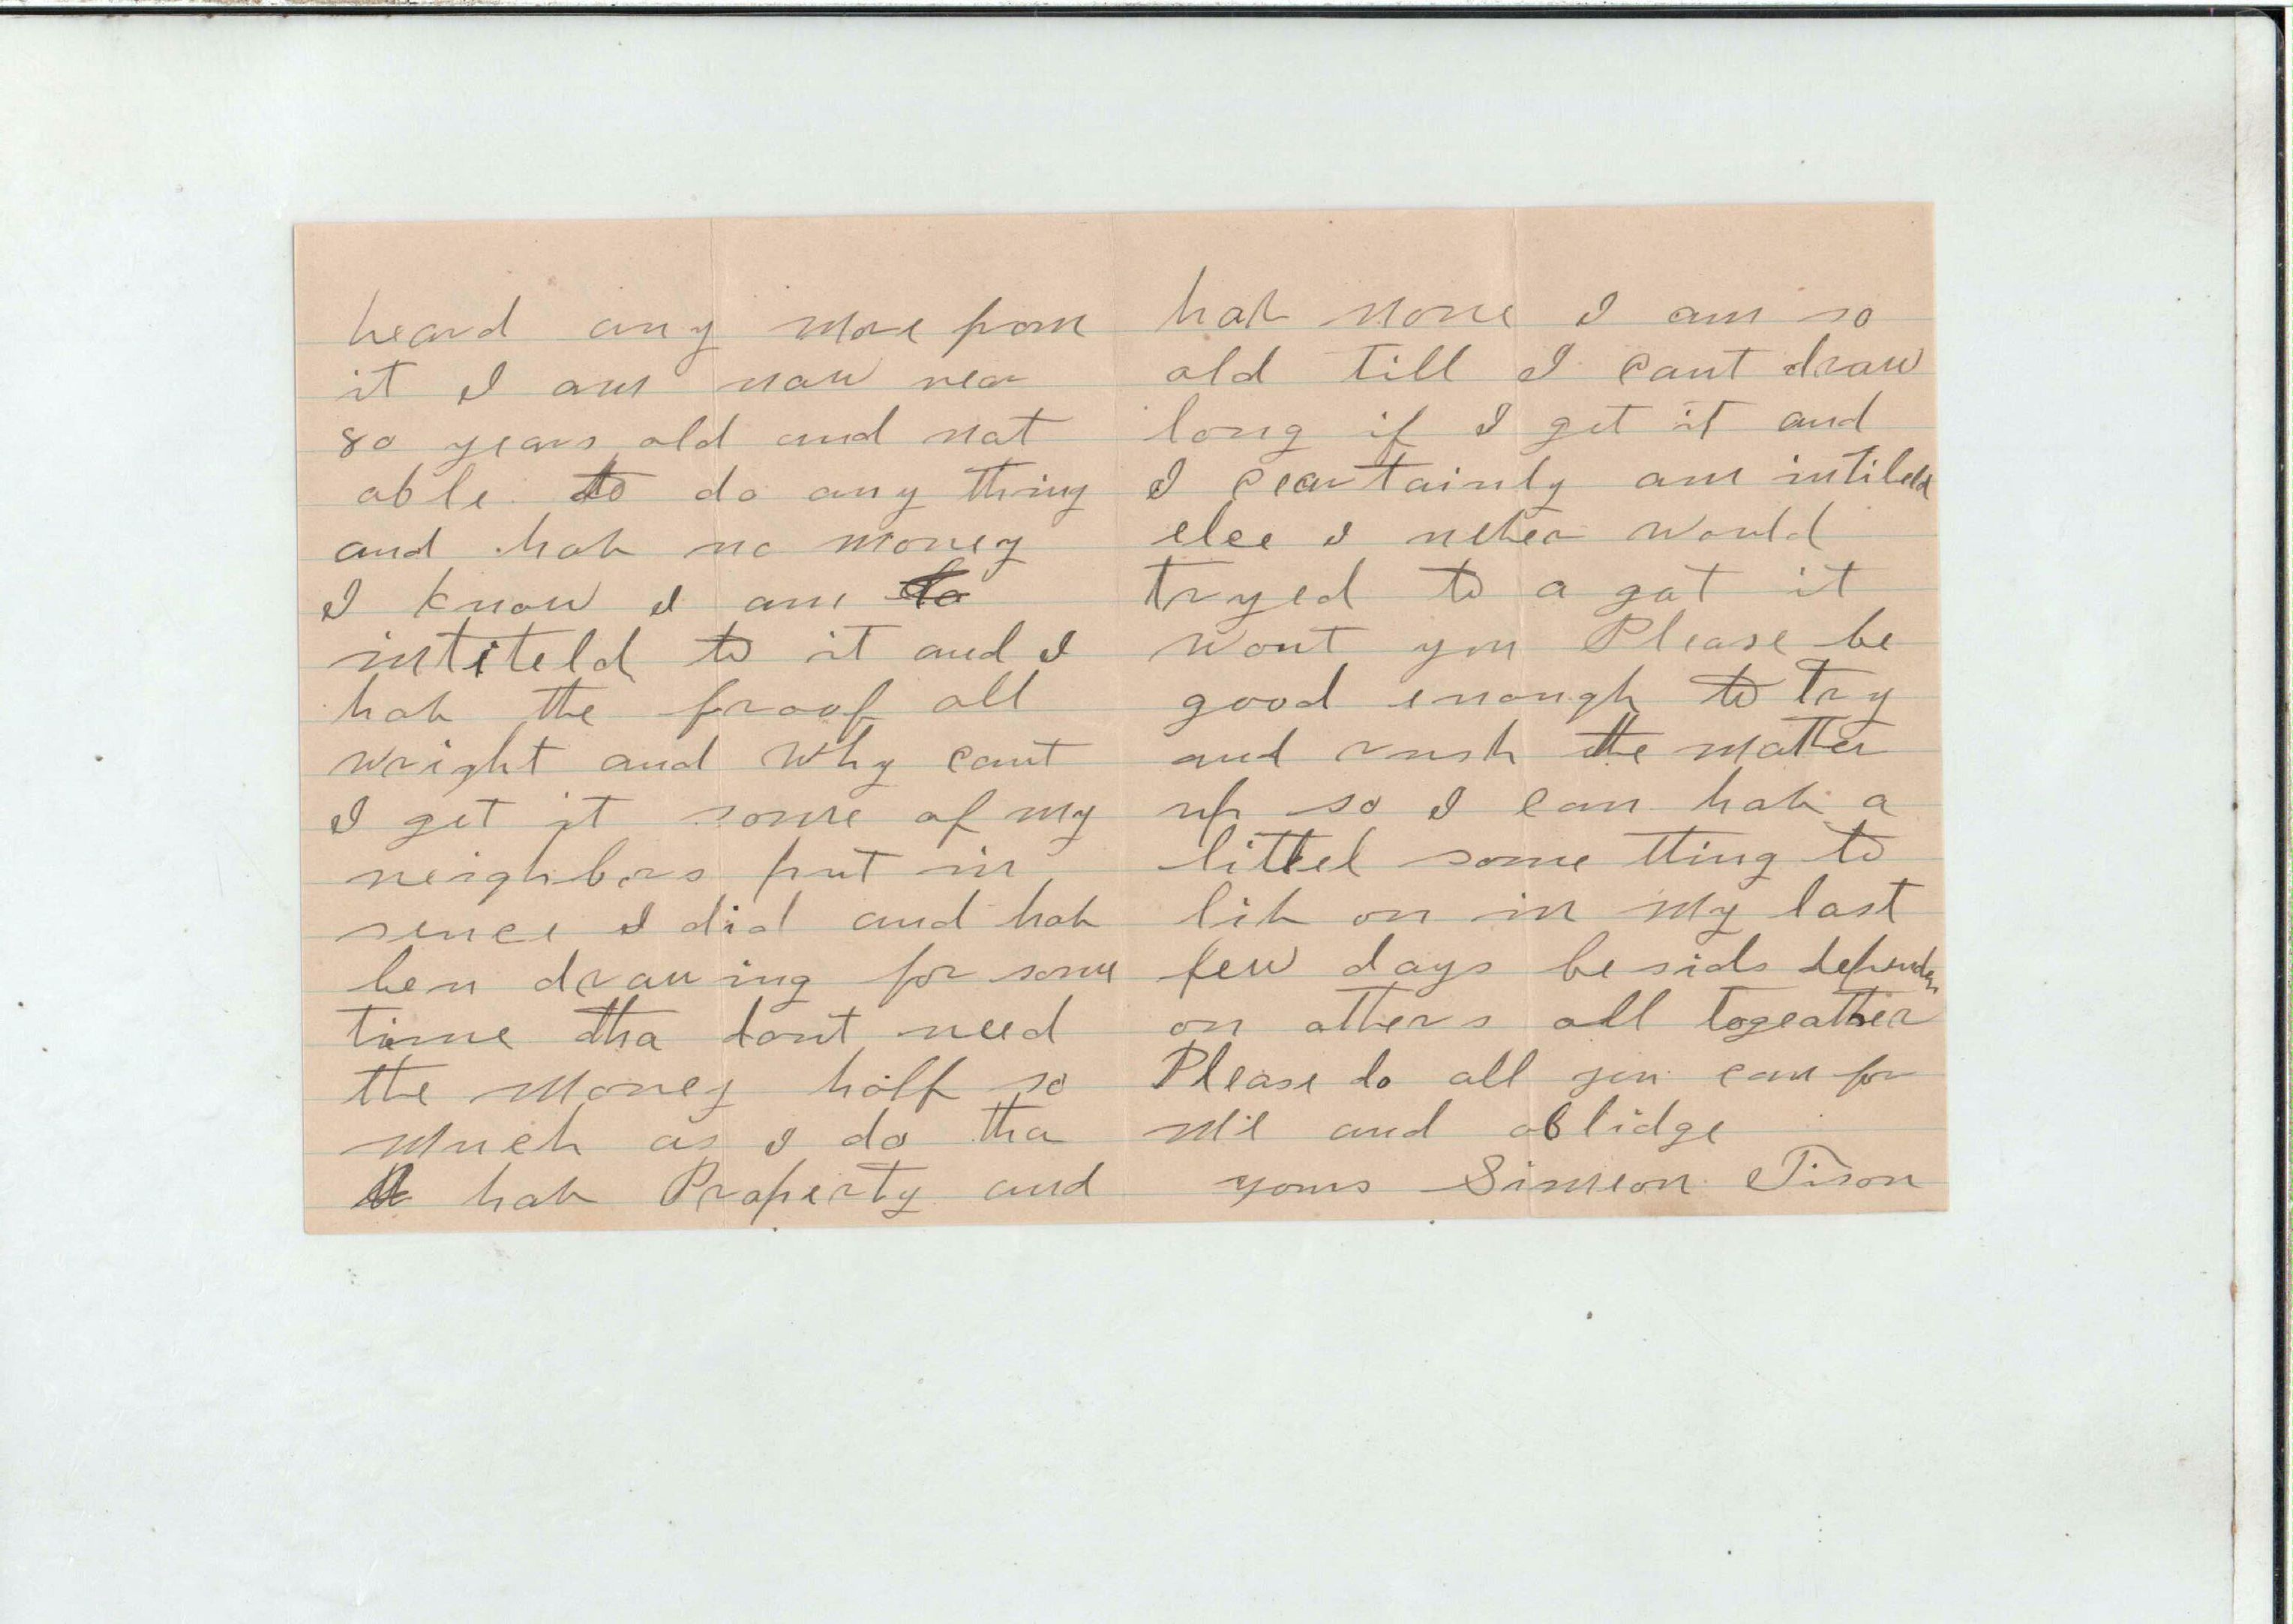 heard any more from
it I am now near
80 years old and not
able to do any thing
and hav no money
I know I am to
intiteld to it and I
hav the proof all
wright and why cant
I get it some of my
neighbors put in
sence I did and hav
ben drawing for some
time tha dont need
the money half so
much as I do tha
hav Property and
hav none I am so
old till I cant draw
long if I get it and
I ceartainly am intiled
elce I never would
tryed to a got it
wont you Please be
good enough to try
and rush the matter
up so I can hav a
littel some thing to
liv on in my last
few days besids
on others all togeather
Please do all you can for
me and oblidge
yours Simeon Tison